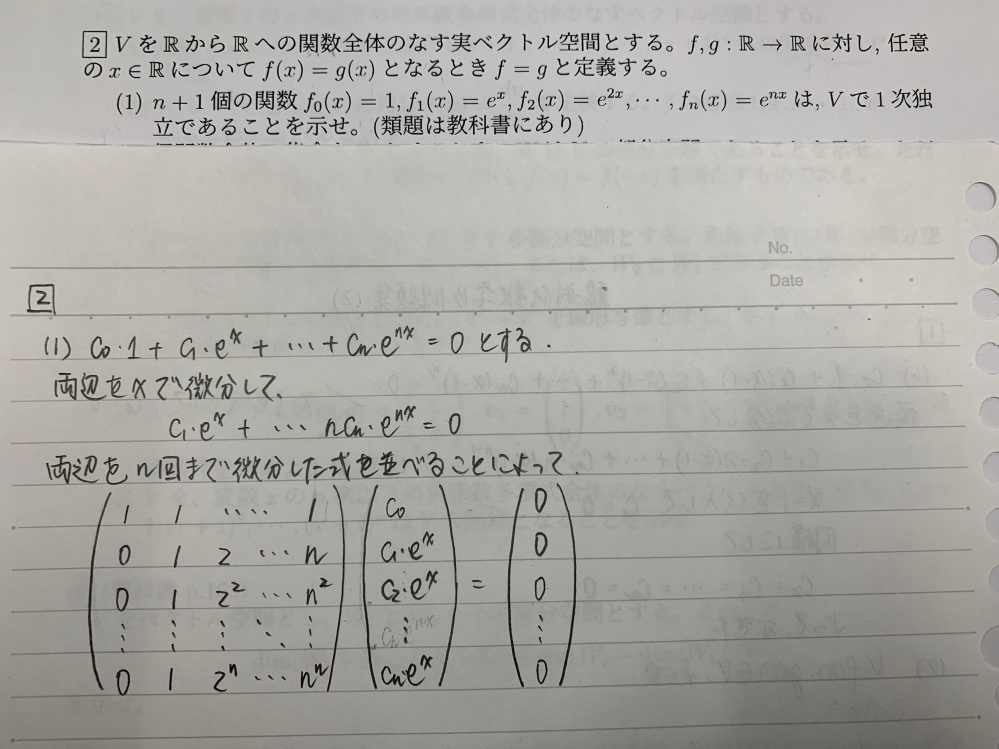 2 VをℝからℝへのF関数全体のなす実ベクトル空間とする。f, g : ℝ → ℝ に対し, 任意
の x ∈ ℝ について f(x) = g(x) となるとき f = g と定義する。
(1) n + 1 個の関数 f₀(x) = 1, f₁(x) = eˣ, f₂(x) = e²ˣ, ⋯ , fₙ(x) = eⁿˣ は, V で 1 次独
立であることを示せ。(類題は教科書にあり)
No.
Date
2
(1) C₀·1 + C₁·eˣ + ⋯ + Cₙ·eⁿˣ = 0 とする.
両辺をxで微分して,
C₁·eˣ + ⋯ nCₙ·eⁿˣ = 0
両辺を n回まで微分した式を並べることによって.
1 1 ⋯⋯ 1 C₀ 0
0 1 2 ⋯ n C₁·eˣ 0
0 1 2² ⋯ n² C₂·eˣ = 0
⋮ ⋮ ⋮ ⋱ ⋮ ⋮ ⋮
0 1 2ⁿ ⋯ nⁿ Cₙeˣ 0